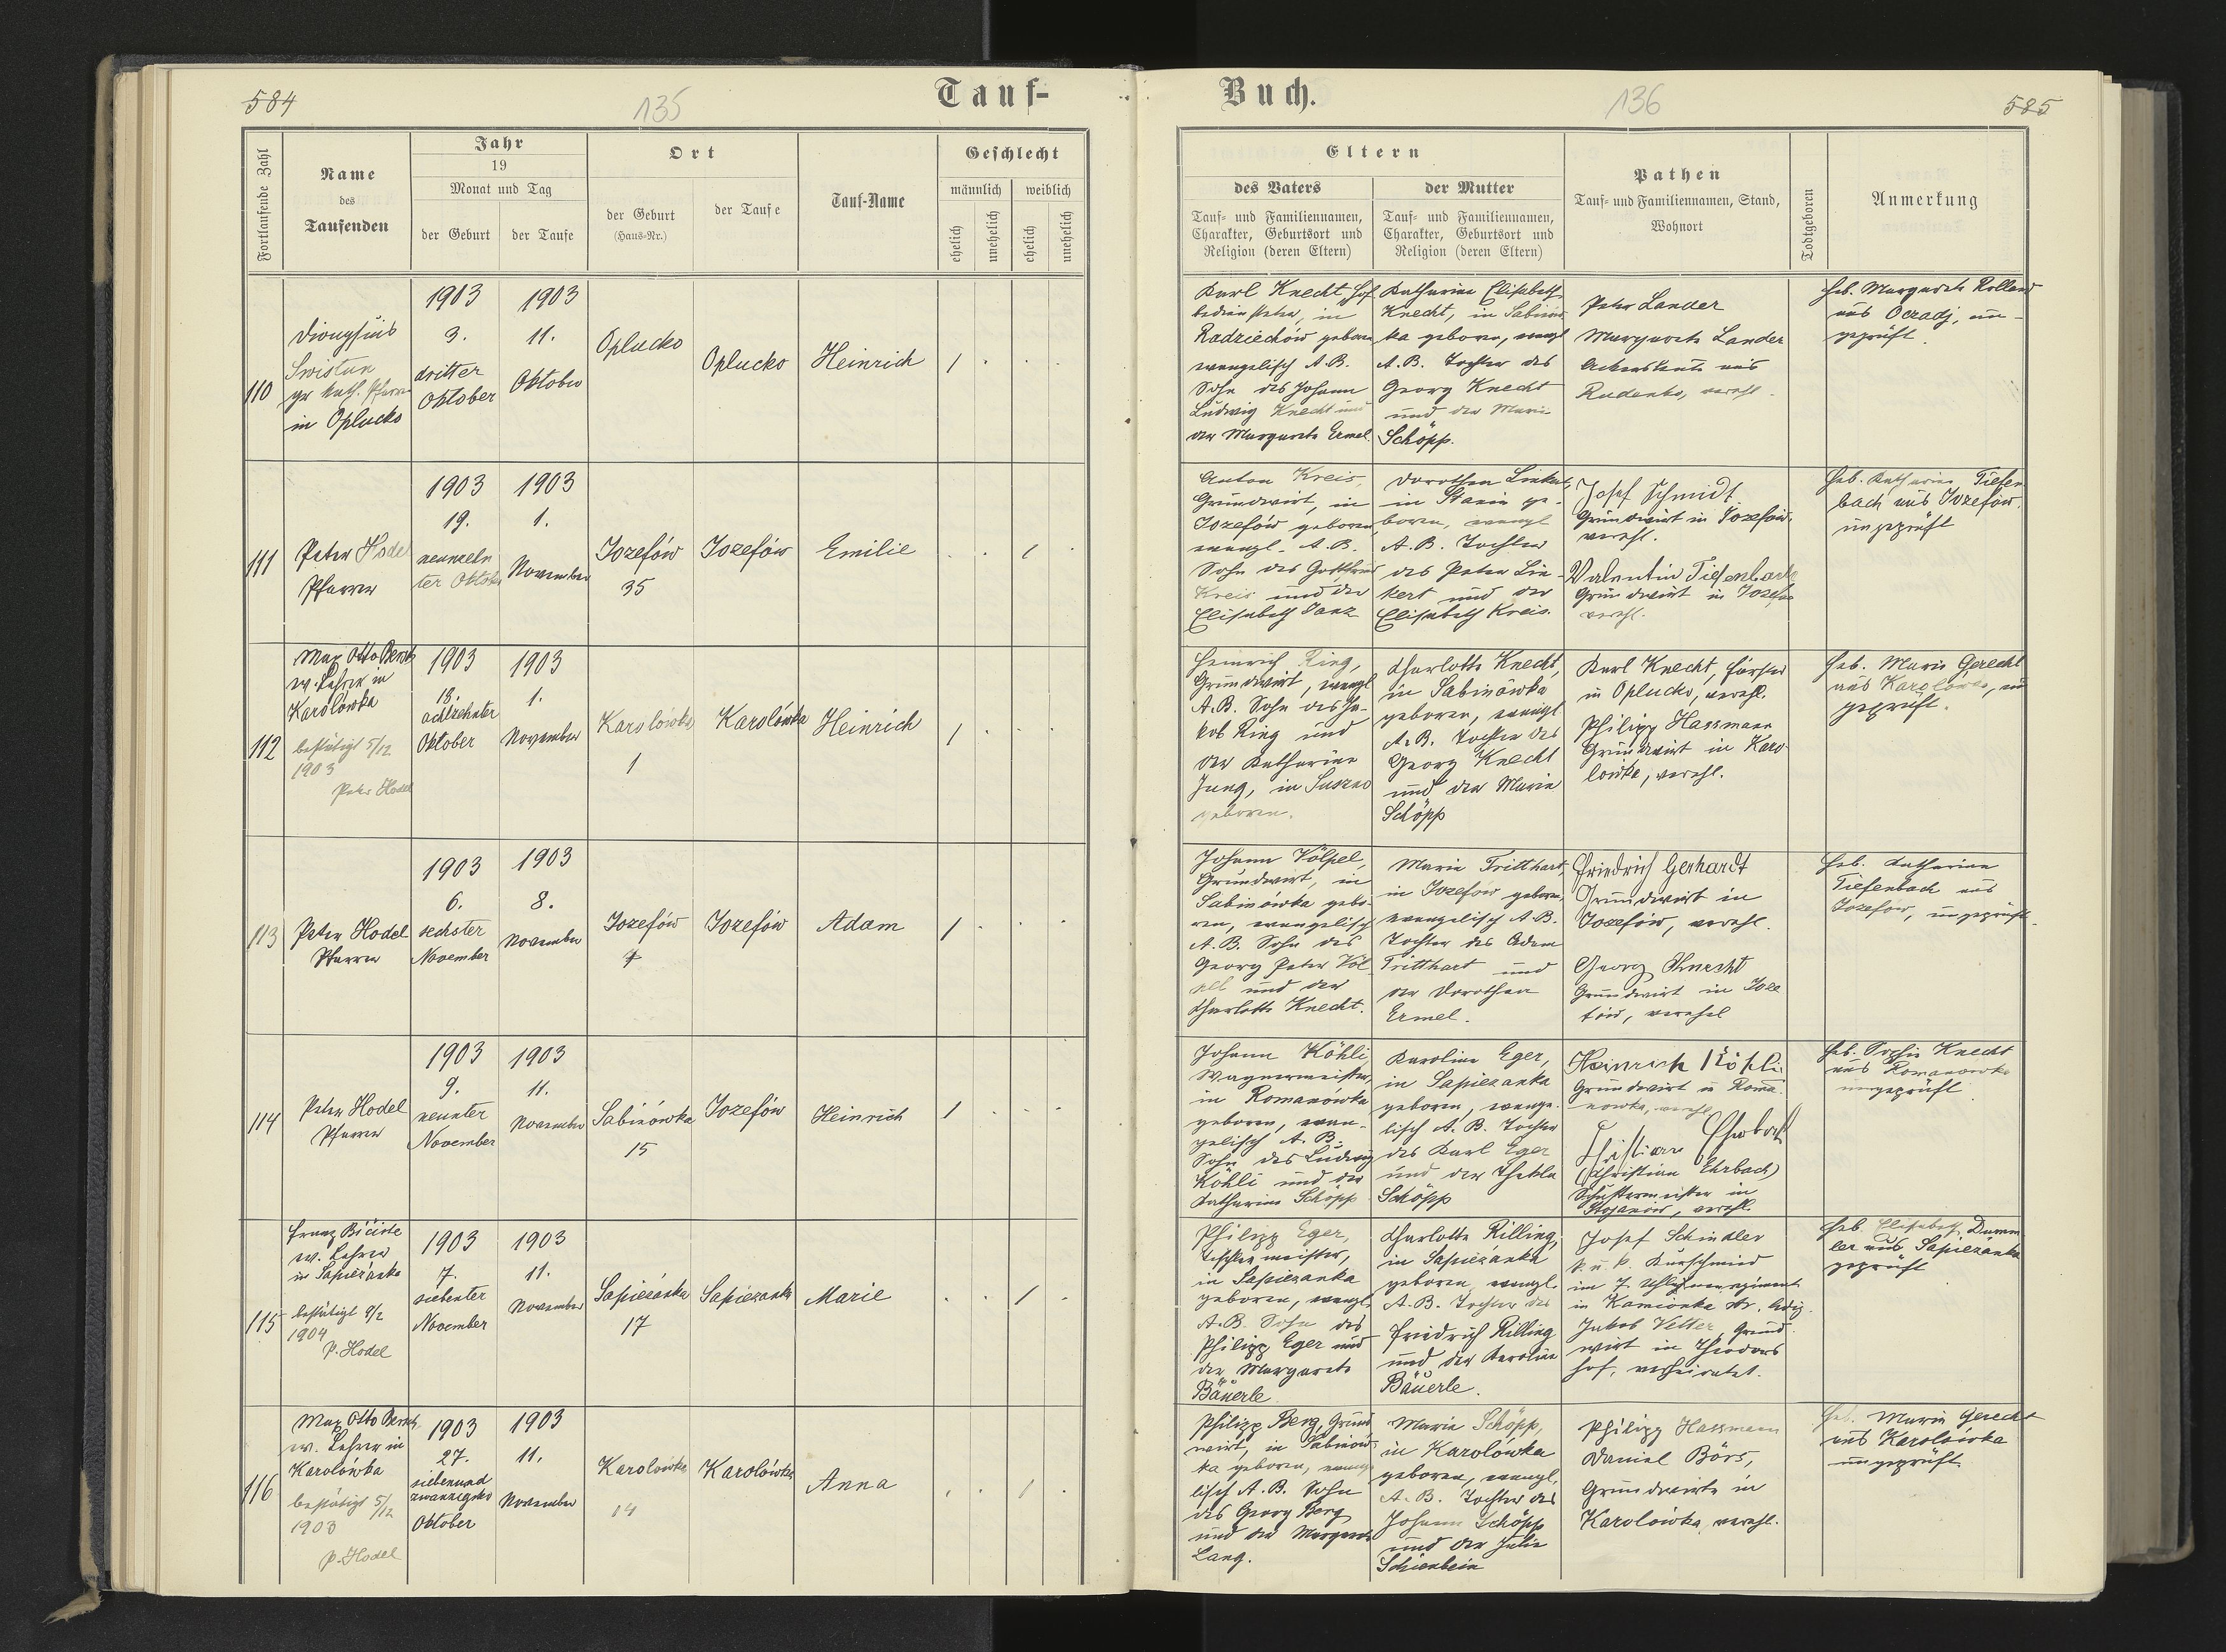 584
135
Tauf-
Fortlaufende Zahl
Name
des
Taufenden
Jahr
19
Monat und Tag
der Geburt
der Taufe
Ort
der Geburt
(Haus-Nr.)
der Taufe
Tauf-Name
Geschlecht
männlich
weiblich
ehelich
unehelich
ehelich
unehelich
110
Dionysius
Swistun
gr. kath. Pfarrer
in Oplucko
1903
3.
dritter
Oktober
1903
11.
Oktober
Oplucko
Oplucko
Heinrich
1
111
Peter Hodel
Pfarrer
1903
19.
neunzehn
ter Oktober
1903
1.
November
Jozefów
35
Jozefów
Emilie
1
112
Max Otto Bersch
ev. Lehrer in
Karolówka
bestätigt 5/12
1903
Peter Hodel
1903
18.
achtzehnter
Oktober
1903
1.
November
Karolówka
1
Karolówka
Heinrich
1
113
Peter Hodel
Pfarrer
1903
6.
sechster
November
1903
8.
November
Jozefów
7
Jozefów
Adam
1
114
Peter Hodel
Pfarrer
1903
9.
neunter
November
1903
11.
November
Sabinówka
15
Jozefów
Heinrich
1
115
Franz
ev. Lehrer
in Sapieżanka
bestätigt 9/2
1904
P. Hodel
1903
7.
siebenter
November
1903
11.
November
Sapieżanka
17
Sapieżanka
Marie
1
116
Max Otto Bersch
ev. Lehrer in
Karolówka
bestätigt 5/12
1903
P. Hodel
1903
27.
siebenund
zwanzigster
Oktober
1903
11.
November
Karolówka
14
Karolówka
Anna
1
Buch.
136
585
Eltern
des Vaters
Tauf- und Familiennamen,
Charakter, Geburtsort und
Religion (deren Eltern)
der Mutter
Tauf- und Familiennamen,
Charakter, Geburtsort und
Religion (deren Eltern)
Pathen
Tauf- und Familiennamen, Stand,
Wohnort
Todtgeboren
Anmerkung
Karl Knecht, Hof
bediensteter, in
Radziechów geboren
evangelisch A.B.
Sohn des Johann
Ludwig Knecht und
der Margarete Ermel.
Katharine Elisabeth
Knecht, in Sabinów
ka geboren, evangl
A.B. Tochter des
Georg Knecht
und der Marie
Schöpp.
Peter Lander
Margarete Lander
Ackersleute aus
Rudenko, verehl.
Heb. Margarete Rolland
aus Ocradj, un-
geprüft.
Anton Kreis,
Grundwirt, in
Jozefów geboren
evangl. A.B.
Sohn des Gottfried
Kreis und der
Elisabeth Janz
Dorothea Linkert,
in Stanin ge-
boren, evangl
A.B. Tochter
des Peter Lin-
kert und der
Elisabeth Kreis.
Josef Schmidt
Grundwirt in Jozefów.
verehl.
Valentin Tiefenbach
Grundwirt in Jozefów
verehl.
Heb. Katharine Tiefen
bach aus Jozefów.
ungeprüft
Heinrich Ring,
Grundwirt, evangl
A.B. Sohn des Ja-
kob Ring und
der Katharine
Jung, in Suszno
geboren.
Charlotte Knecht,
in Sabinówka
geboren, evangl
A.B. Tochter des
Georg Knecht
und der Marie
Schöpp
Karl Knecht, Förster
in Oplucko, verehl.
Philipp Hassmann
Grundwirt in Karo-
lówka, verehl.
Heb. Marie Gerecht
aus Karolówka, un
geprüft.
Johann Völpel,
Grundwirt, in
Sabinówka gebo-
ren, evangelisch
A.B. Sohn des
Georg Peter Völ
pel und der
Charlotte Knecht.
Marie Tritthart,
in Jozefów geboren,
evangelisch A.B.
Tochter des Adam
Tritthart und
der Dorothea
Ermel.
Friedrich Gerhardt
Grundwirt in
Jozefów, verehl.
Georg Knecht
Grundwirt in Joze
fów, verehel
Heb. Katharine
Tiefenbach aus
Jozefów, ungeprüft.
Johann Köhli
Wagnermeister,
in Romanówka
geboren, evan-
gelisch A.B.
Sohn des Ludwig
Köhli und der
Katharine Schöpp
Karoline Eger,
in Sapiezanka
geboren, evange-
lisch A.B. Tochter
des Karl Eger
und der Thekla
Schöpp
Heinrich Köhli
Grundwirt in Roma
nowka, verehl
Christian Ehrbach
(Christian Ehrbach)
Schustermeister in
Stojanów, verehl.
Heb. Sophie Knecht
aus Romanowka
ungeprüft
Philipp Eger,
Tischlermeister,
in Sapiezanka
geboren, evangl.
A.B. Sohn des
Philipp Eger und
der Margarete
Bäuerle
Charlotte Rilling,
in Sapieżanka
geboren, evangl.
A.B. Tochter des
Friedrich Rilling
und der Karoline
Bäuerle.
Josef Schindler
k. u. k. Kurschmied
im 7. Uhlanenregiment
in Kamionka str. ledig.
Jakob Vetter, Grund-
wirt in Theodors
hof, verheiratet.
Heb. Elisabeth Dumm
ler aus Sapiezanka
geprüft
Philipp Berg, Grund
wirt, in Sabinów-
ka geboren, evange
lisch A.B. Sohn
des Georg Berg
und der Margarete
Lang.
Marie Schöpp,
in Karolówka
geboren, evangl.
A.B. Tochter des
Johann Schöpp
und der Julie
Schienbein
Philipp Hassmann
Daniel Börs,
Grundwirte in
Karolówka, verehl.
Heb. Marie Gerecht
aus Karolówka
ungeprüft